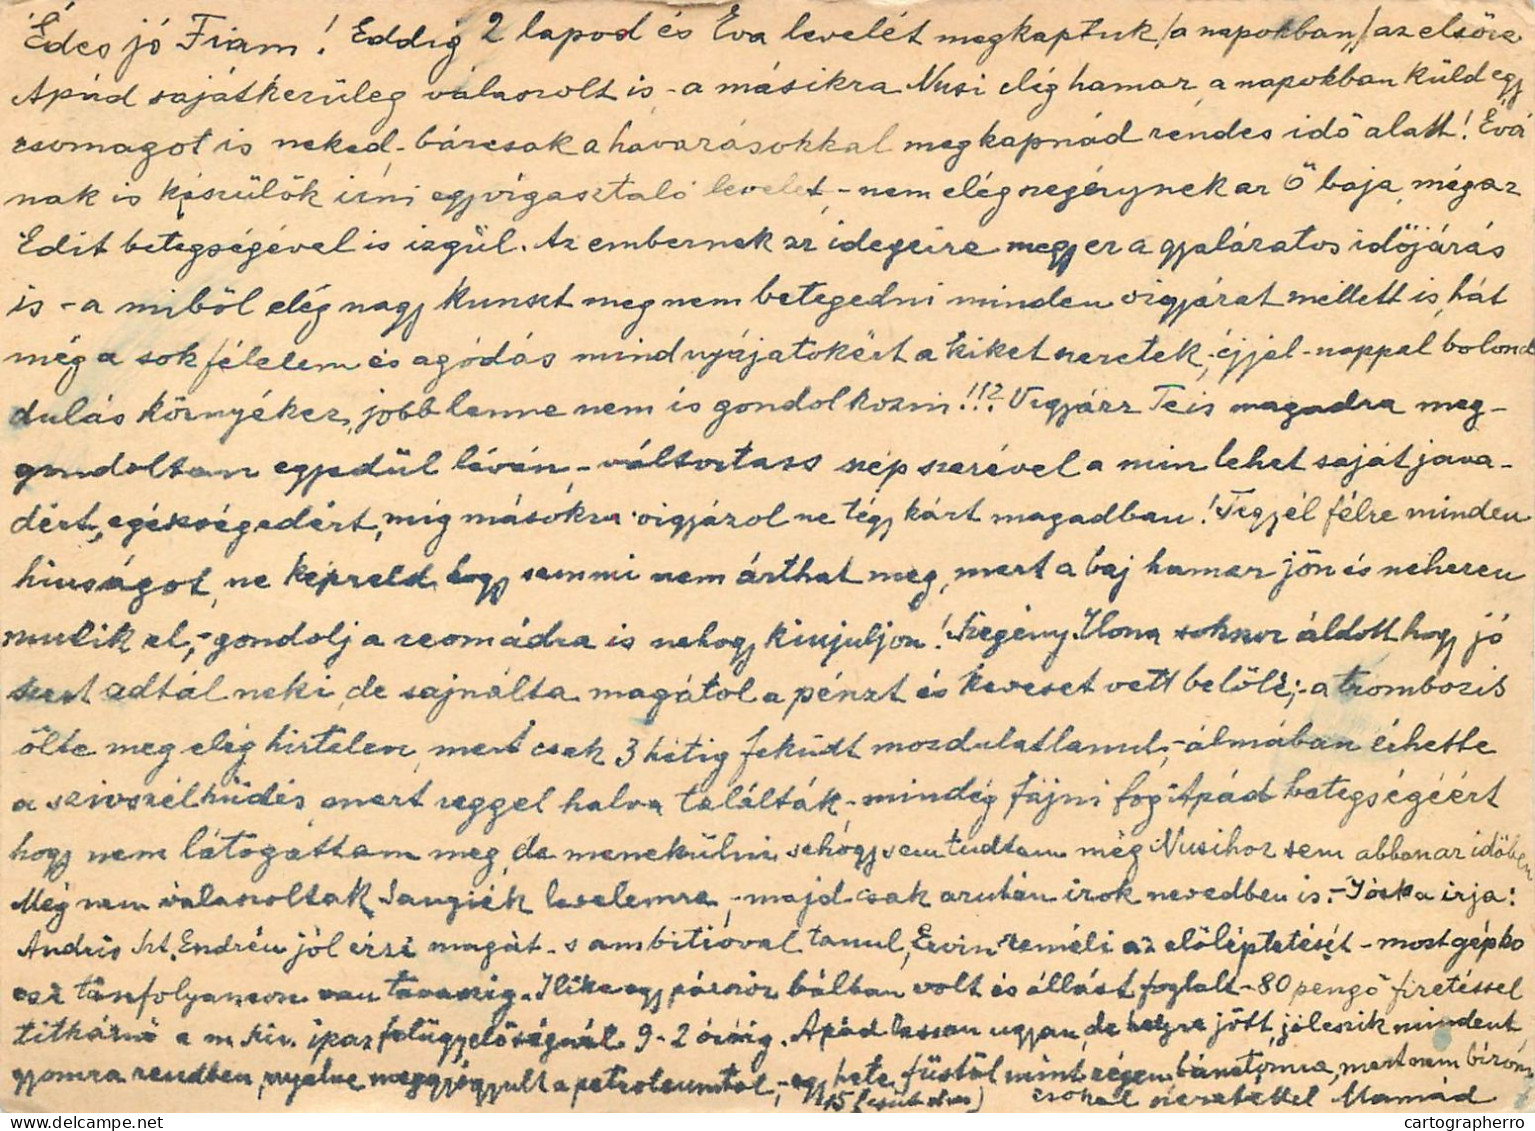 Édes jó Fiam! Eddig 2 lapod és Éva levelét megkaptuk /a napokban,/ az elsőre
Apád sajátkezüleg válaszolt is - a másikra Nusi elég hamar, a napokban küld egy
csomagot is neked, - bárcsak a havazásokkal megkapnád rendes idő alatt! Évá
nak is készülök irni egy vigasztaló levelet, - nem elég szegénynek az Ő baja, még az
Edit betegségével is izgul. Az embernek az idegeire megy ez a gyalázatos időjárás
is - a miből elég nagy kunszt meg nem betegedni minden vigyázat mellett is, hát
még a sok félelem és agódás mindnyájatokért a kiket szeretek, éjjel-nappal bolond
dulás környékez, jobb lenne nem is gondolkozni!!? Vigyázz Te is magadra meg-
gondoltan egyedül lévén, - változtass szép szerével a min lehet saját java-
dért, egészségedért, mig másokra vigyázol ne tégy kárt magadban! Tegyél félre minden
hiuságot, ne képzeld hogy semmi nem árthat meg, mert a baj hamar jön és nehezen
mulik el, - gondolj a reomádra is nehogy kiujuljon! Szegény Ilona sokszor áldott hogy jó
szert adtál neki, de sajnálta magától a pénzt és keveset vett belőle; - a trombozis
ölte meg elég hirtelen, mert csak 3 hétig feküdt mozdulatlanul, - álmában érhette
a szivszélhüdés, mert reggel halva találták, - mindég fájni fog Apád betegségéért
hogy nem látogattam meg, de menekülni sehogy sem tudtam még Nusihoz sem abban az időben
Még nem válaszoltak Sangiék levelemre, - majd csak azután irok nevedben is. - Jóska irja:
Andris Szt. Endrén jól érzi magát - s ambitióval tanul, Ervin reméli az előléptetését - most gépko
csi tanfolyamon van tavaszig. Ilike egy bálban volt és állást foglalt - 80 pengő fizetéssel
titkárnő a m. kir. iparfelügyelőségnél 9-2 óráig. Apád lassan ugyan, de helyre jött, jóleszik mindent
gyomra rendben, nyelve meggyógyult a petroleumtól, - egy hete füstöl mint régen bánatomra, mert nem birom
15 csókol szeretettel Mamád
cartographerro